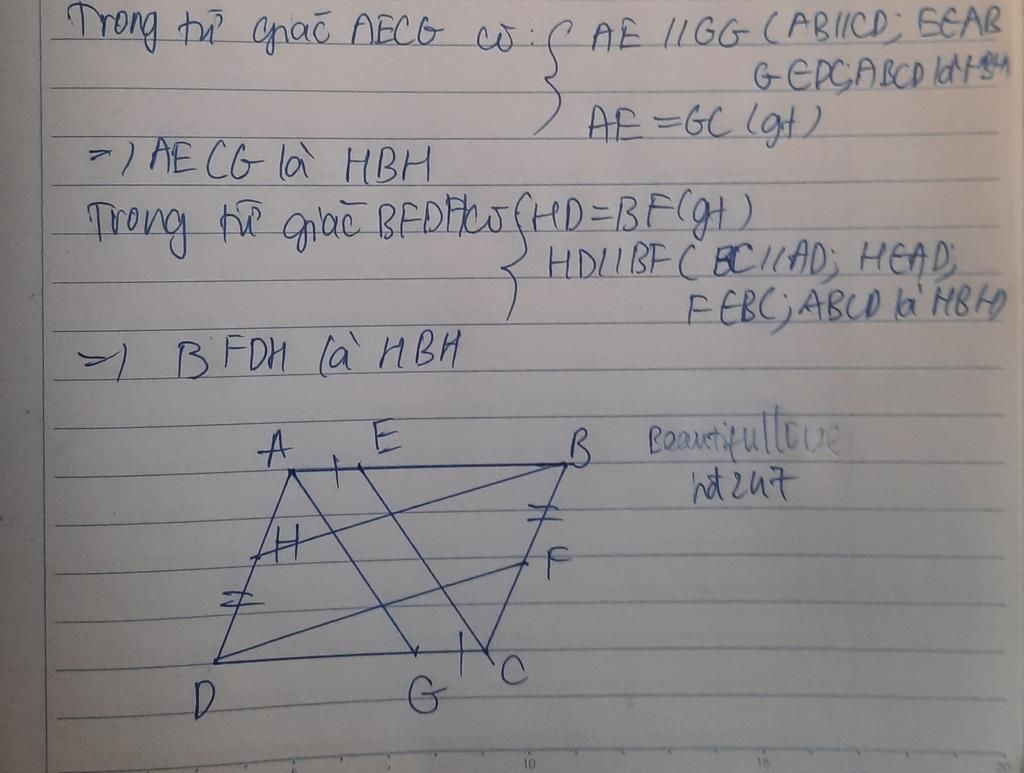 Trong tứ giác AECG có: { AE // GG (AB//CD; E∈AB
G∈DC; ABCD là HBH
AE = GC (gt)
=) AECG là HBH
Trong tứ giác BFDH có { HD = BF (gt)
HD // BF (BC // AD; H∈AD;
F∈BC; ABCD là HBH)
=) BFDH là HBH
A E B
Beautifullove
hdt247
H
F
D G C
10